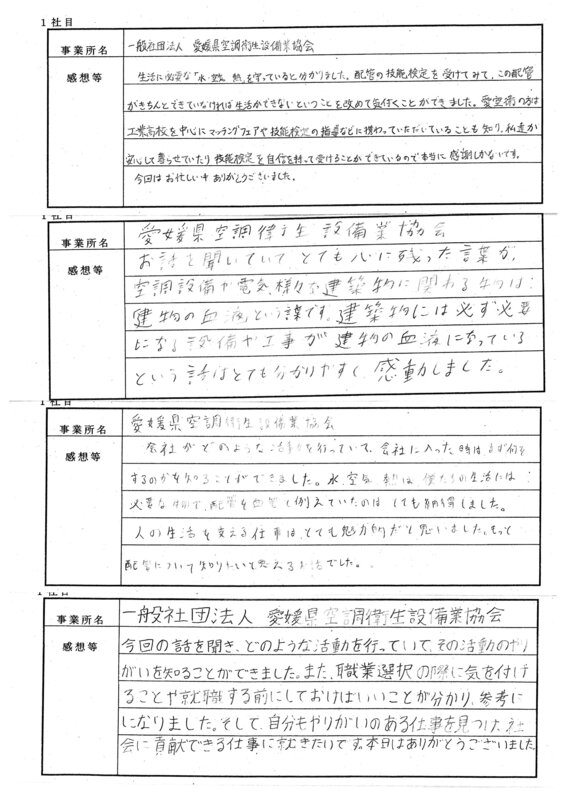 1社目
事業所名 一般社団法人 愛媛県空調衛生設備業協会
感想等 生活に必要な「水・空気・熱」を守っていると分かりました。配管の技能検定を受けてみて、この配管
がきちんとできていなければ生活ができないということを改めて気付くことができました。愛空衛の方は
工業高校を中心にマッチングフェアや技能検定の指導などに携わっていただいていることも知り、私達が
安心して暮らせていたり技能検定を自信を持って受けることができているので本当に感謝しかないです。
今回はお忙しい中ありがとうございました。
1社目
事業所名 愛媛県空調衛生設備業協会
感想等 お話を聞いていてとても心に残った言葉が、
空調設備や電気、様々な建築物に関わる物は
建物の血液という課です。建築物には必ず必要
になる設備や工事が建物の血液になっている
という話はとても分かりやすく、感動しました。
1社目
事業所名 愛媛県空調衛生設備業協会
感想等 会社がどのような活動を行っていて、会社に入った時はまず何を
するのかを知ることができました。水、空気、熱は、僕たちの生活には
必要な物で、配管を血管で例えていたのはとても納得しました。
人の生活を支える仕事は、とても魅力的だと思いました。もっと
配管について知りたいと思えるお話でした。
1社目
事業所名 一般社団法人 愛媛県空調衛生設備業協会
感想等 今回の話を聞き、どのような活動を行っていて、その活動のやり
がいを知ることができました。また、職業選択の際に気を付け
ることや就職する前にしておけばいいことが分かり、参考に
になりました。そして、自分もやりがいのある仕事を見つけ、社
会に貢献できる仕事に就きたいです。本日はありがとうございました。